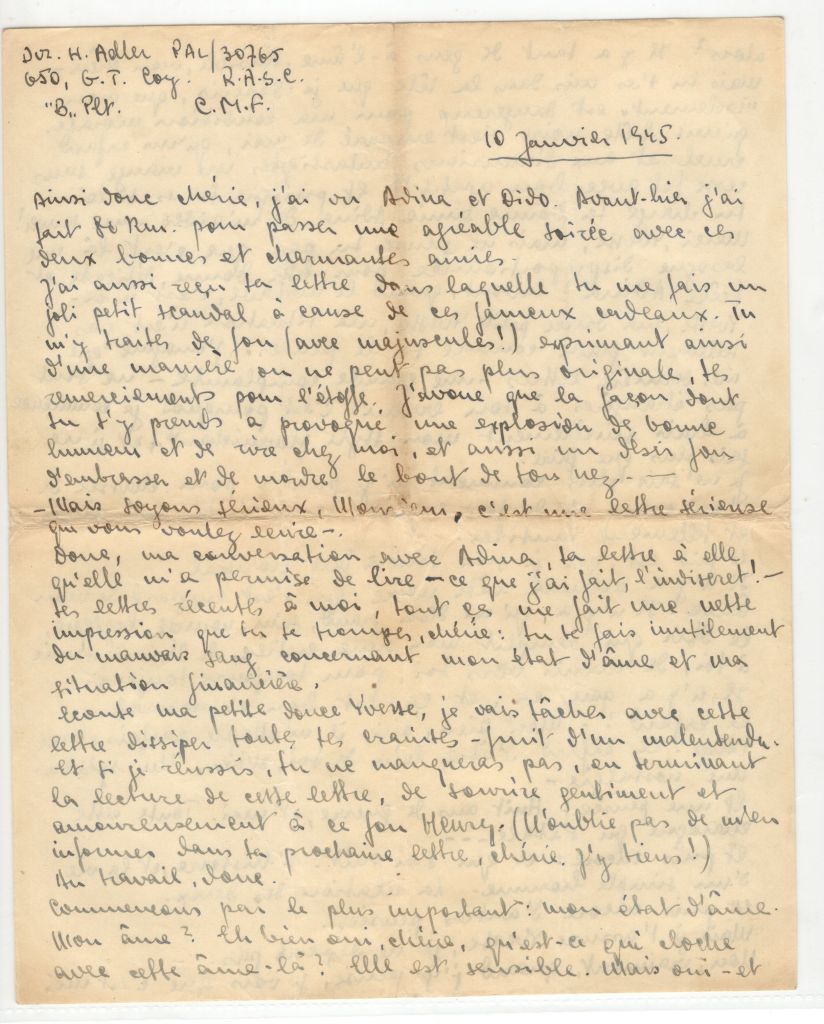 Dvr. H. Adler PAL/30765
650, G.T. Coy. R.A.S.C.
"B" Plt. C.M.F.
10 Janvier 1945.
Ainsi donc chérie, j'ai vu Adina et Dido. Avant-hier j'ai
fait 80 Km. pour passer une agréable soirée avec ces
deux bonnes et charmantes amies.
J'ai aussi reçu ta lettre dans laquelle tu me fais un
joli petit scandal à cause de ces fameux cadeaux. Tu
m'y traites de fou (avec majuscules!) exprimant ainsi
d'une manière on ne peut pas plus originale, tes
remerciements pour l'étoffe. J'avoue que la façon dont
tu t'y prends a provoqué une explosion de bonne
humeur et de rire chez moi, et aussi un désir fou
d'embrasser et de mordre le bout de ton nez. —
- Mais soyons sérieux, Monsieur, c'est une lettre sérieuse
que vous voulez écrire -.
Donc, ma conversation avec Adina, ta lettre à elle
qu'elle m'a permise de lire - ce que j'ai fait, l'indiscret! -
tes lettres récentes à moi, tout ça me fait une nette
impression que tu te trompes, chérie: tu te fais inutilement
du mauvais sang concernant mon état d'âme et ma
situation financière.
Ecoute ma petite douce Yvette, je vais tâcher avec cette
lettre dissiper toutes tes craintes - fruit d'un malentendu.
Et si je réussis, tu ne manqueras pas, en terminant
la lecture de cette lettre, de sourire gentiment et
amoureusement à ce fou Henry. (N'oublie pas de m'en
informer dans ta prochaine lettre, chérie. J'y tiens!)
Au travail, donc.
Commencons par le plus important: mon état d'âme.
Mon âme? Eh bien oui, chérie, qu'est-ce qui cloche
avec cette âme-là? Elle est sensible. Mais oui - et